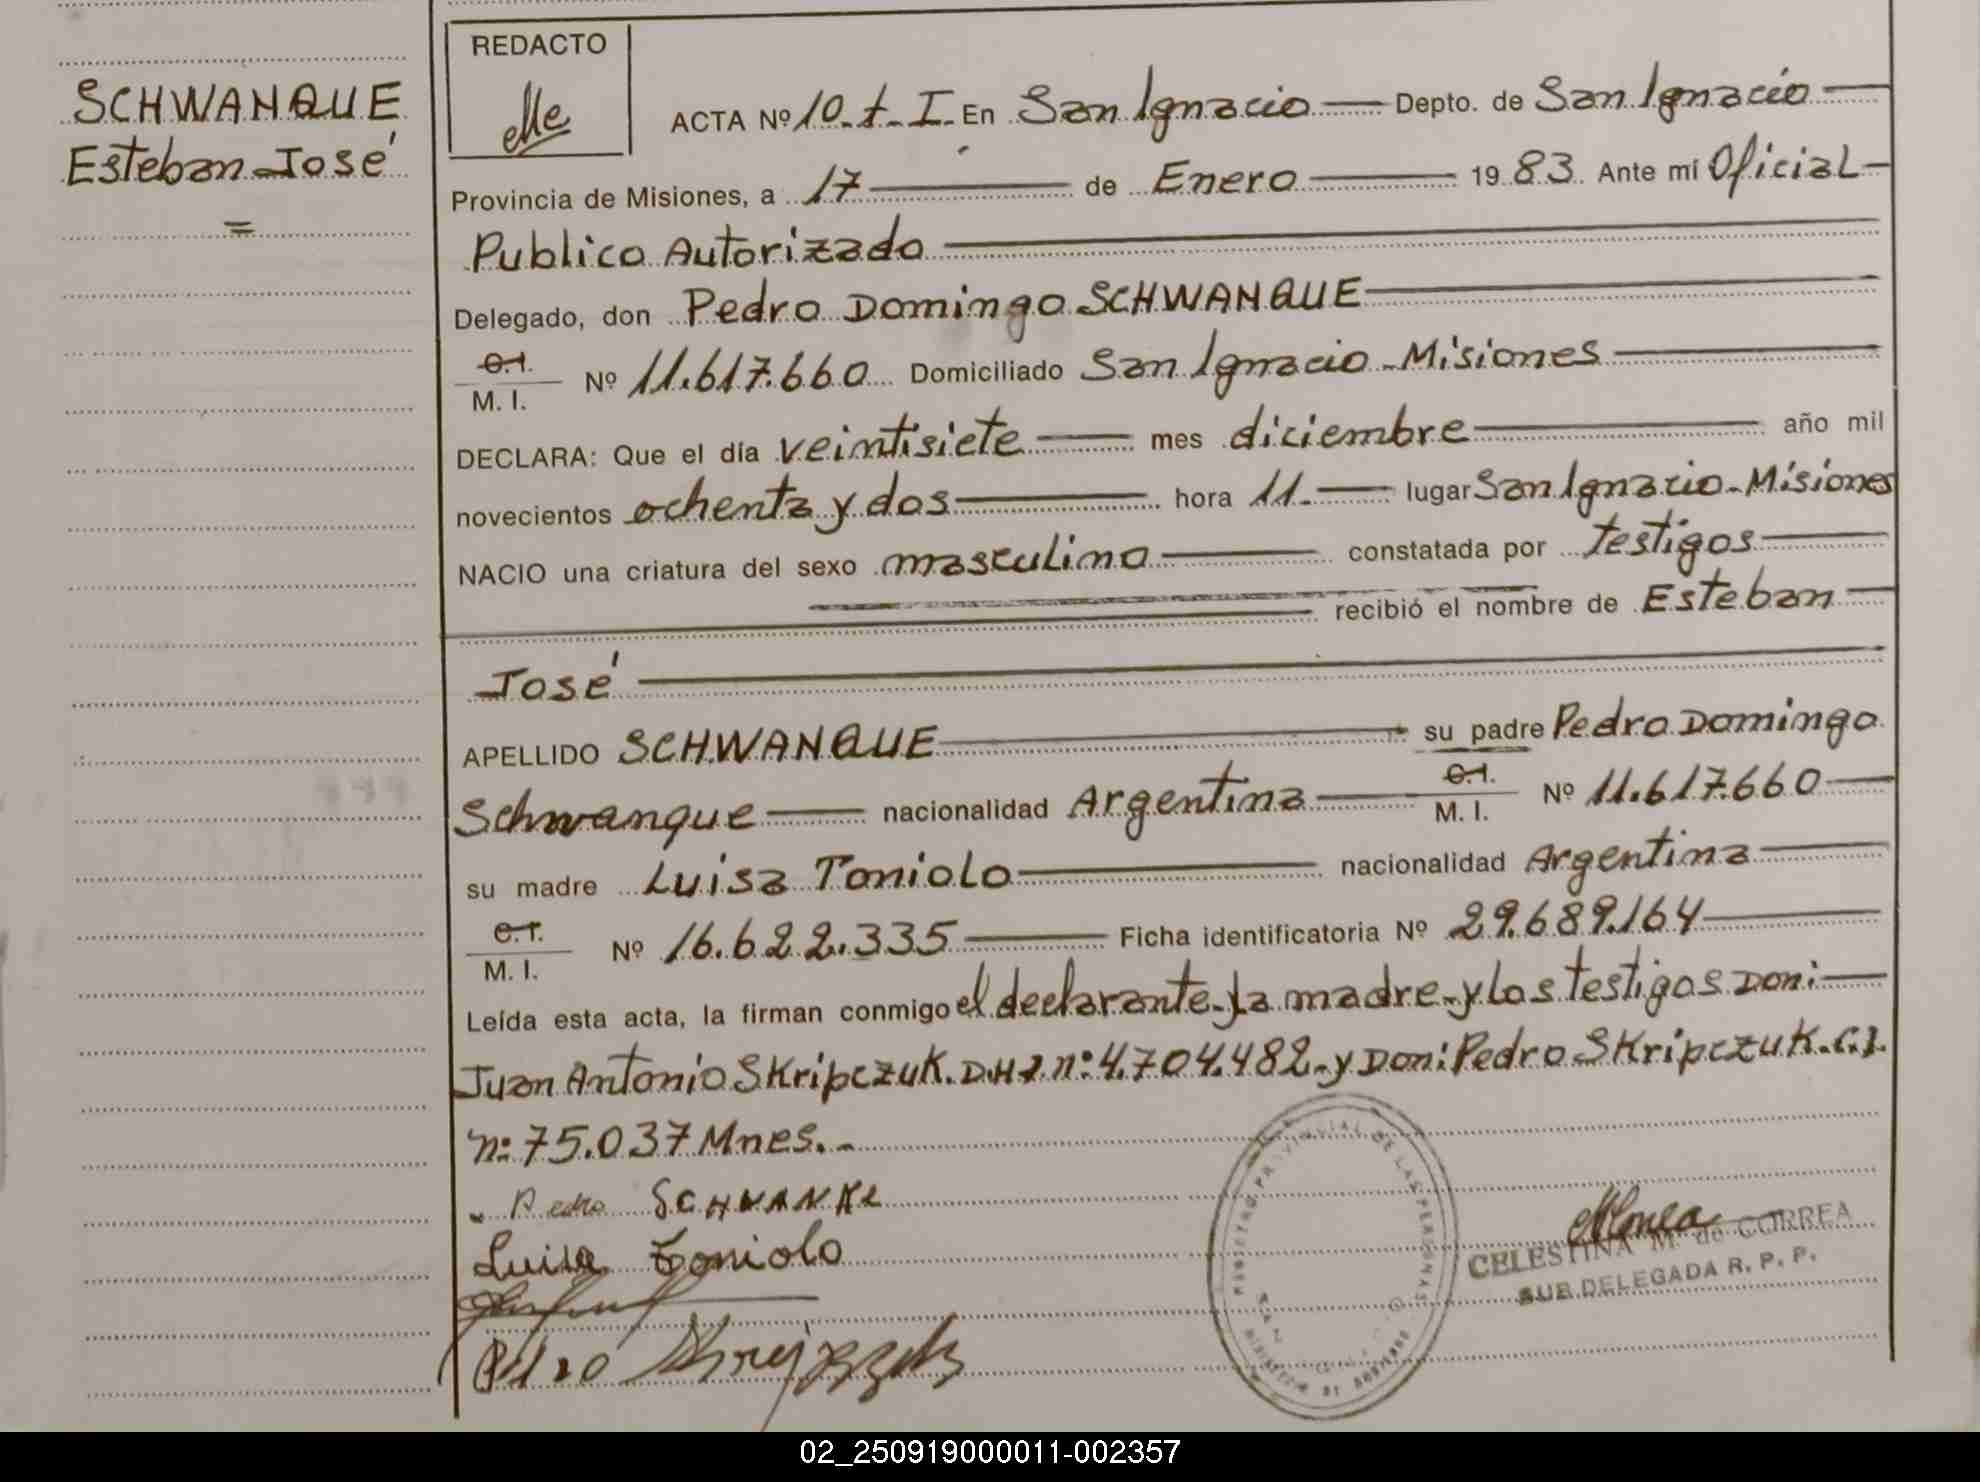 SCHWANQUE
Esteban José
=
REDACTO
ACTA Nº 10-t-I. En San Ignacio Depto. de San Ignacio
Provincia de Misiones, a 17 de Enero 1983. Ante mí Oficial
Publico Autorizado
Delegado, don Pedro Domingo SCHWANQUE
C.I.
M. I. Nº 11.617.660 Domiciliado San Ignacio - Misiones
DECLARA: Que el día veintisiete mes diciembre año mil
novecientos ochenta y dos hora 11. lugar San Ignacio - Misiones
NACIO una criatura del sexo masculino constatada por testigos
recibió el nombre de Esteban
José
APELLIDO SCHWANQUE su padre Pedro Domingo
Schwanque nacionalidad Argentina C.I. M. I. Nº 11.617.660
su madre Luisa Toniolo nacionalidad Argentina
C.I.
M. I. Nº 16.622.335 Ficha identificatoria Nº 29.689.164
Leída esta acta, la firman conmigo el declarante - la madre - y los testigos Don:
Juan Antonio Skripczuk. D.N.I. nº: 4.704.482 - y Don: Pedro Skripczuk. C.I.
nº: 75.037 Mnes. -
Pedro SCHWANKE
Luisa Toniolo
Pedro
REGISTRO PROVINCIAL DE LAS PERSONAS
MINISTERIO DE GOBIERNO
CELESTINA Mª de CORREA
SUB DELEGADA R. P. P.
02_250919000011-002357